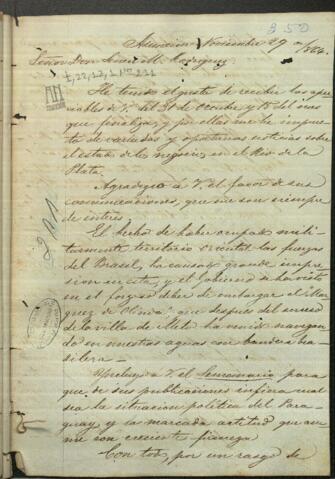 350
Asuncion Noviembre 29 de 1864.
Señor Don José M. Rodriguez
I, 22, 12, 1 Nº 221
He tenido el gusto de recibir las apre-
ciables de V. del 31 de Octubre y 15 del mes
que finaliza, y por ellas me he impues-
to de variadas y oportunas noticias sobre
el estado de los negocios en el Rio de la
Plata.
Agradezco á V. el favor de sus
comunicaciones, que me son siempre
de interes.
El hecho de haber ocupado mili-
tarmente territorio oriental las fuerzas
del Brasil, ha causado grande impre-
sion en esta, y el Gobierno se ha visto
en el forzoso deber de embargar el Mar-
quez de Olinda que despues del suceso
de la villa de Melo ha venido navegan-
do en nuestras aguas con bandera bra-
silera.
á V. el Semanario para
que de sus publicaciones infiera cual
sea la situacion politica del Para-
guay, y la marcada actitud que asu-
me con creciente firmeza.
Con todo, por un rasgo de